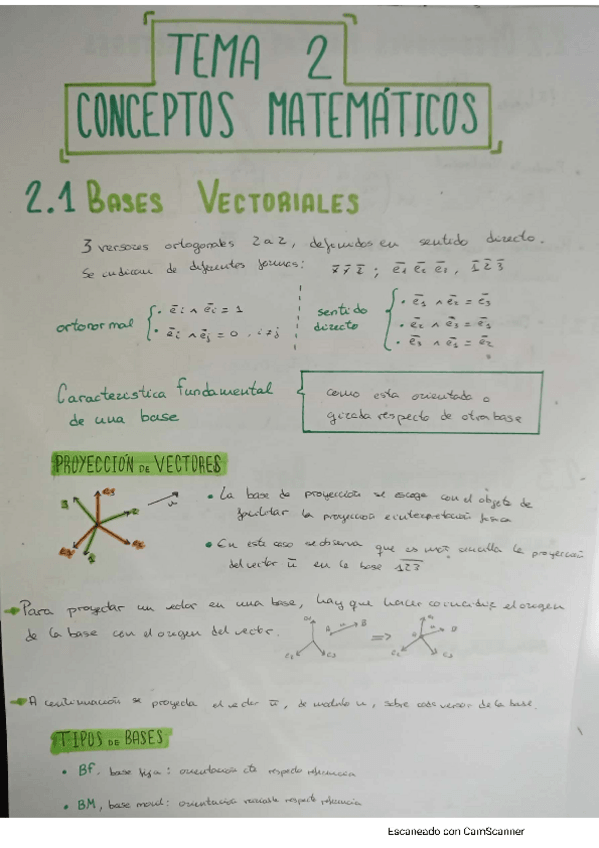 TEMA 2
CONCEPTOS MATEMÁTICOS
2.1 BASES VECTORIALES
3 versores ortogonales 2 a 2, definidos en sentido directo.
Se indican de diferentes formas: x̄ ȳ z̄ ; ē₁ ē₂ ē₃ , 1̄ 2̄ 3̄
ortonormal
· ēi ∧ ēi = 1
· ēi ∧ ēj = 0 , i ≠ j
sentido directo
· ē₁ ∧ ē₂ = ē₃
· ē₂ ∧ ē₃ = ē₁
· ē₃ ∧ ē₁ = ē₂
Característica fundamental
de una base
como esta orientada o
girada respecto de otra base
PROYECCIÓN DE VECTORES
• La base de proyección se escoge con el objeto de
facilitar la proyección e interpretación física
• En este caso se observa que es más sencilla la proyección
del vector ū en la base 123
Para proyectar un vector en una base, hay que hacer coincidir el origen
de la base con el origen del vector.
=>
A continuación se proyecta el vector ū, de modulo u, sobre cada versor de la base.
TIPOS DE BASES
• BF, base fija: orientación cte respecto referencia
• BM, base movil: orientación variable respecto referencia
Escaneado con CamScanner